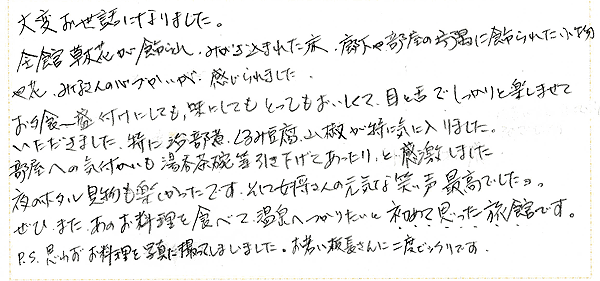 大変お世話になりました。
全館草花が飾られ、みがき込まれた床、廊下や部屋の隅に飾られた小物
や花、みなさんの心づかいが、感じられました。
お夕食〜盛付けにしても、味にしてもとってもおいしくて、目と舌でしっかりと楽しませて
いただきました。特に治部煮、くるみ豆腐、山椒が特に気に入りました。
部屋への気付かいも湯呑茶碗等引き下げてあったり、と感激しました
夜のホタル見物も楽しかったです。そして女将さんの元気な笑い声最高でした。
ぜひ、また、あのお料理を食べて、温泉へつかりたいと初めて思った旅館です。
P.S. 思わずお料理を写真に撮ってしまいました。お若い板長さんに二度ビックリです。